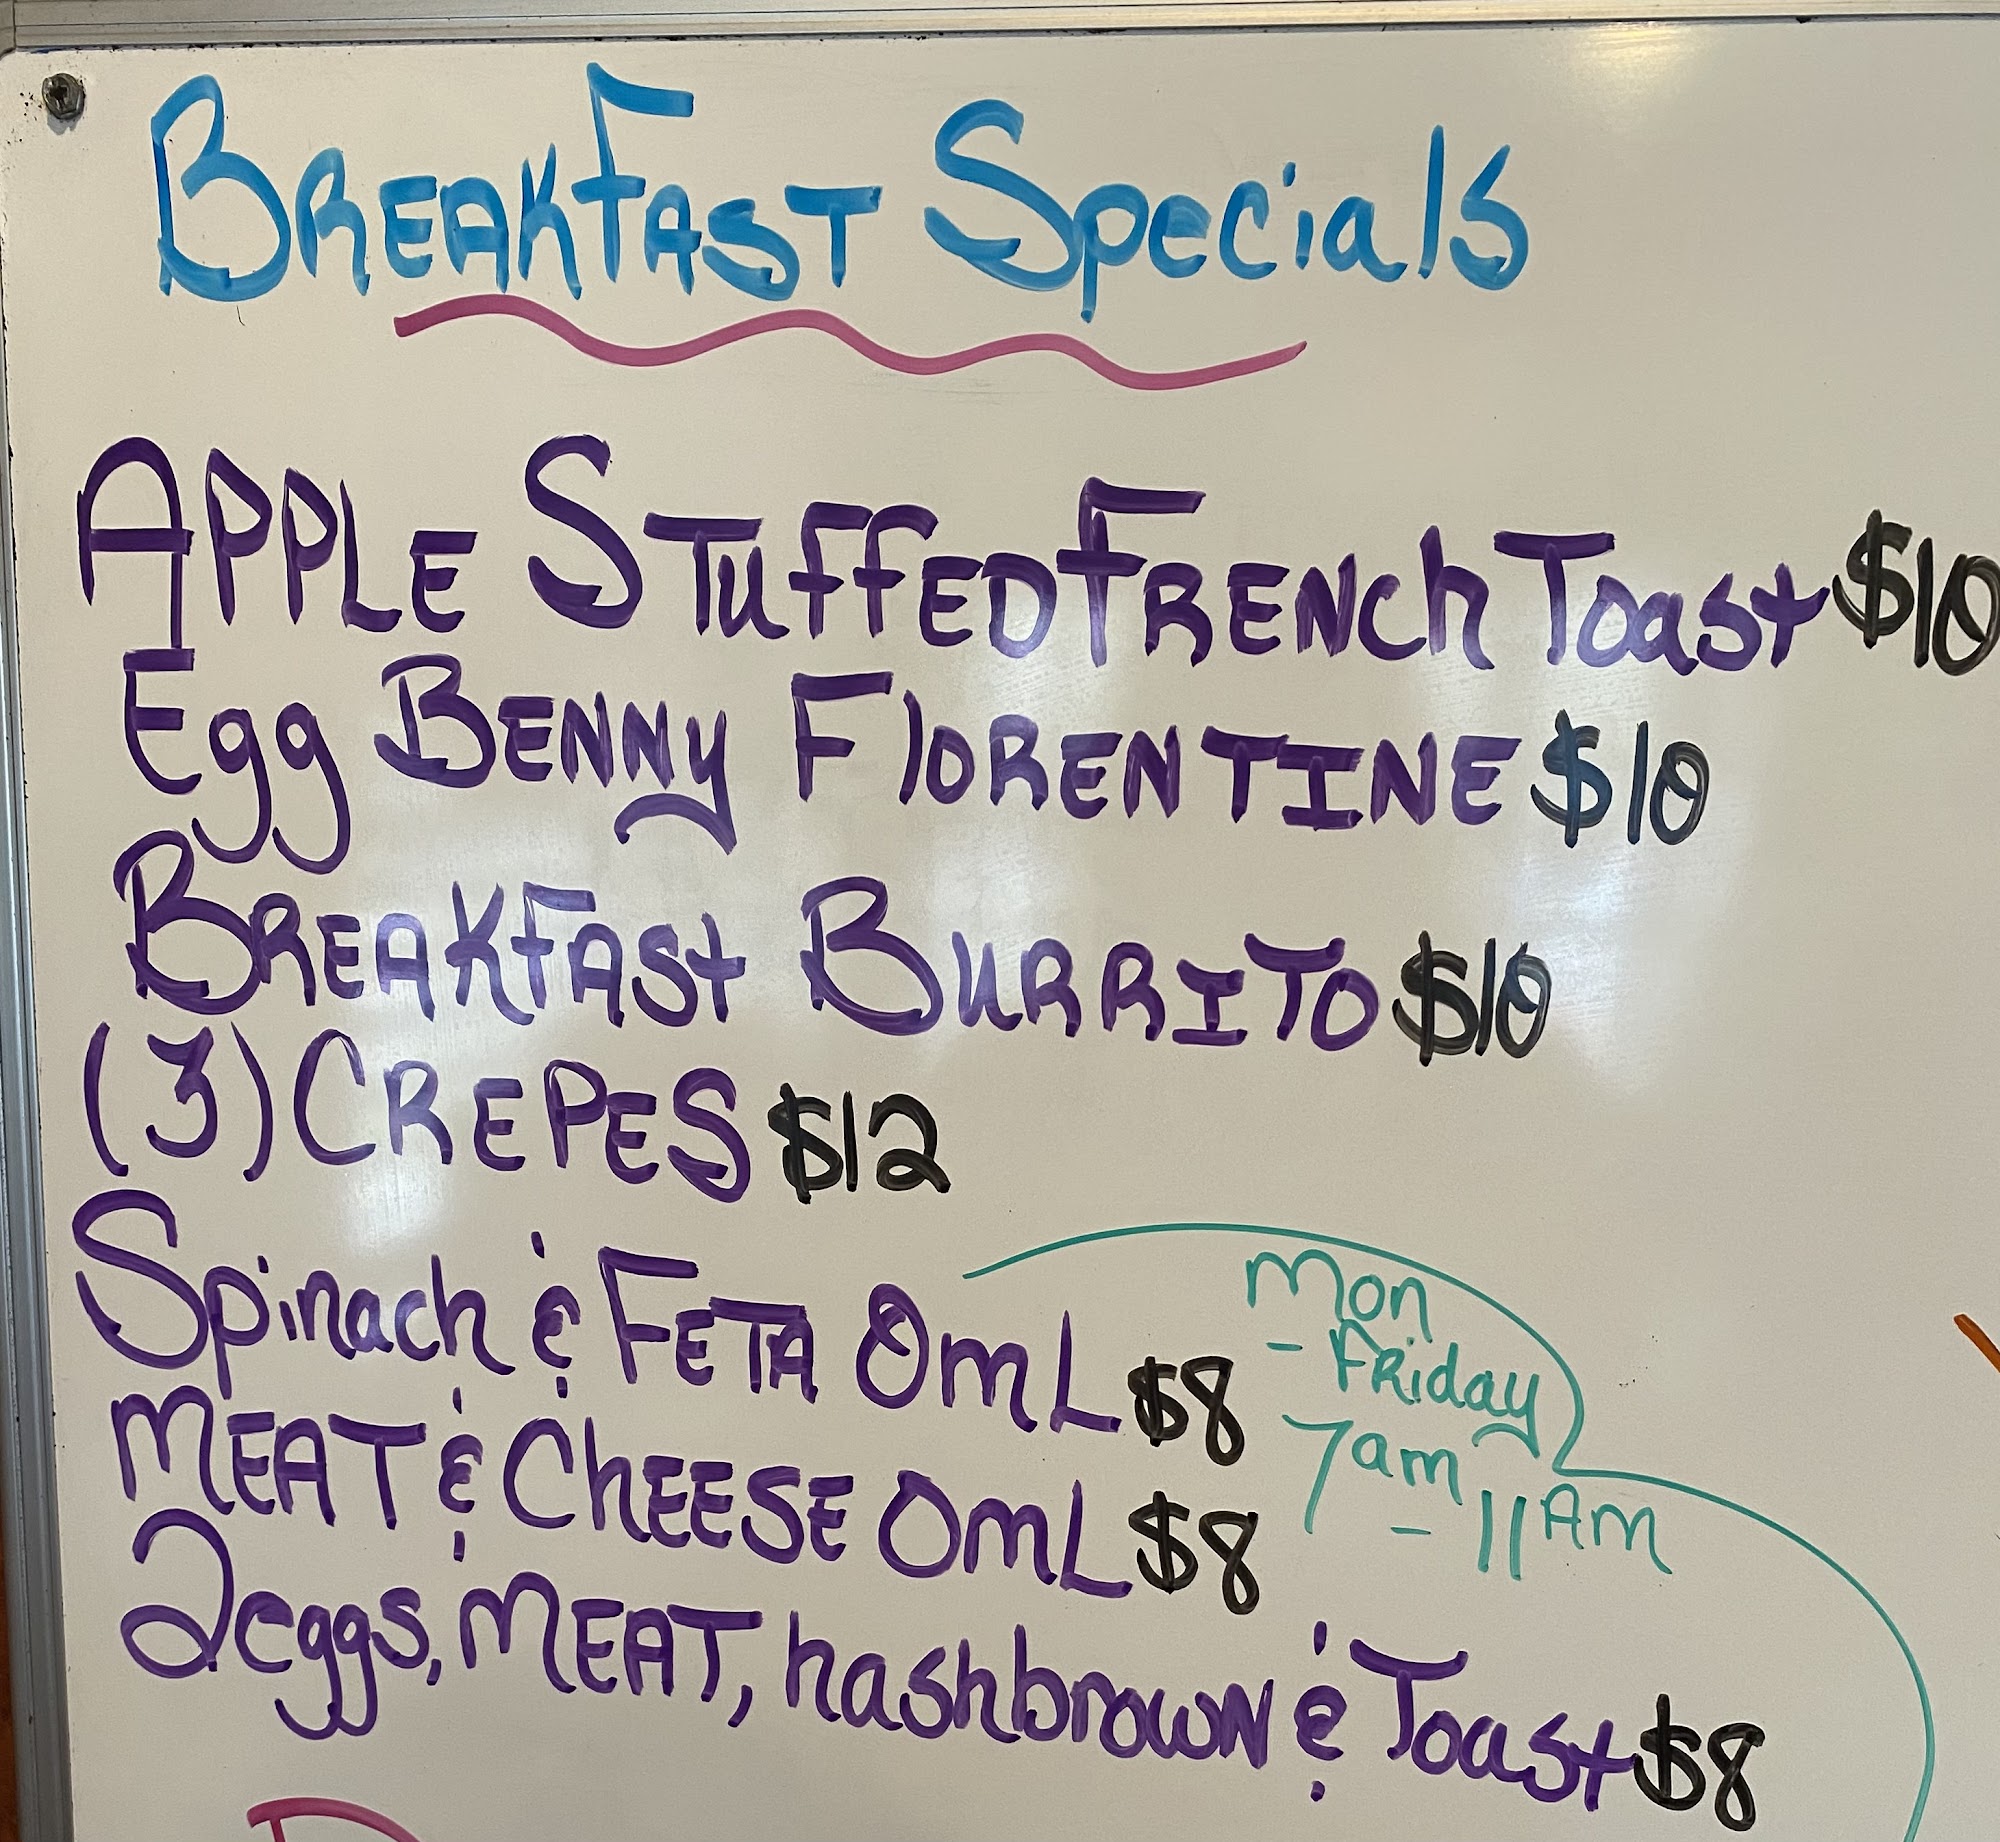 BREAKFAST Specials
APPLE STUFFED FRENCH Toast $10
Egg BENNY FlORENTINE $10
BREAKFAST BURRITO $10
(3) CREPES $12
Spinach & FETA OmL $8
Mon
- FRiday
MEAT & ChEESE OmL $8
7am
- 11AM
2eggs, MEAT, hashbrowN & Toast $8